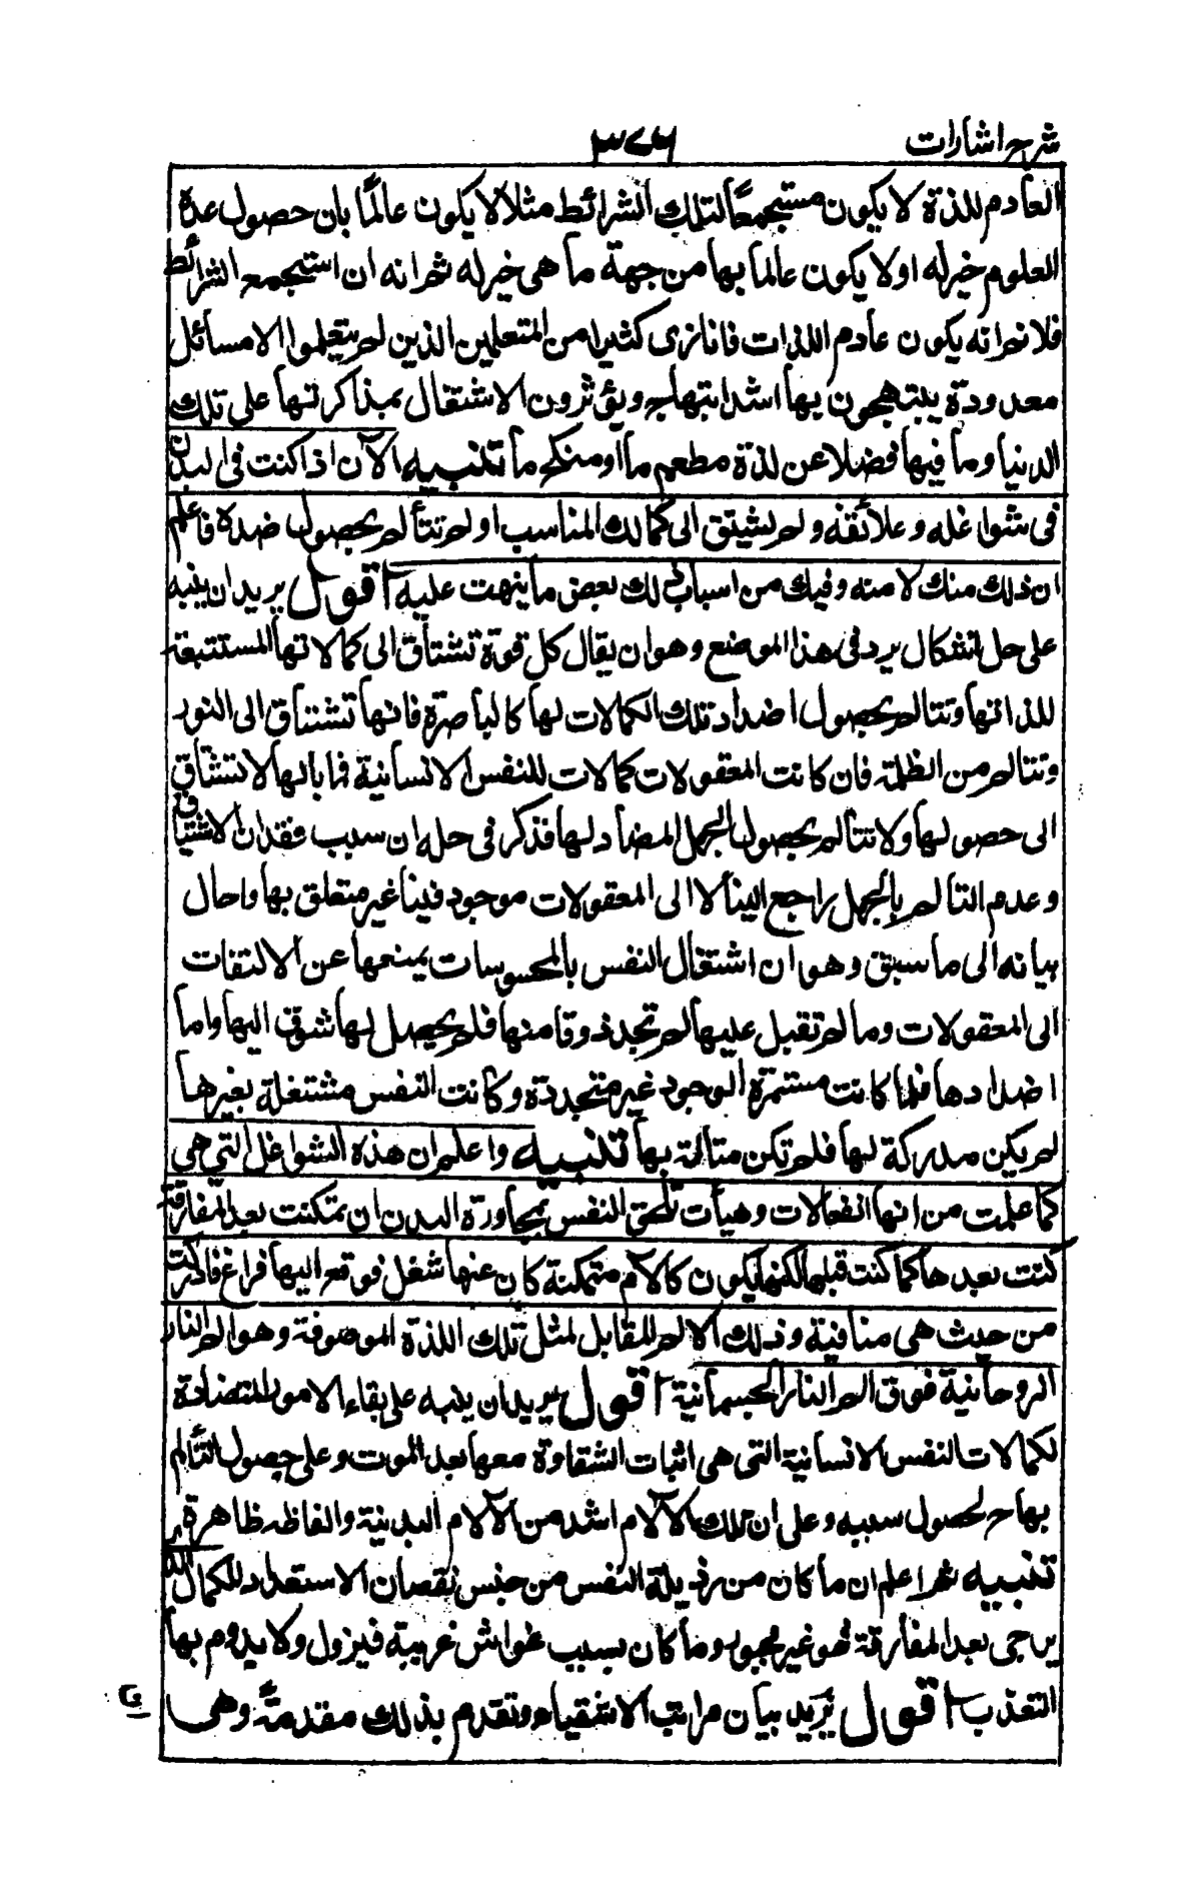 شرح اشارات
٣٧٦
العادم للذة لا يكون مستجمعًا لتلك الشرائط مثلا لا يكون عالمًا بان حصول عدة
العلوم خير له او لا يكون عالما بها من جهة ما هى خير له ثم انه ان استجمع الشرائط
فلا نم انه يكون عادم اللذات فانا نرى كثيرا من المتعلمين الذين لم يتعلموا الا مسائل
معدودة يبتهجون بها اشد ابتهاج ويؤثرون الاشتغال بمذاكرتها على تلك
الدنيا وما فيها فضلا عن لذة مطعم ما او منكح ما تنبيه الآن اذا كنت فى البدن
فى شواغله وعلائقه ولم تشتق الى كمالك المناسب او لم تتألم بحصول ضده فاعلم
ان ذلك منك لا منه وفيك من اسباب ذلك بعض ما نبهت عليه اقول يريد ان ينبه
على حل اشكال يرد فى هذا الموضع وهو ان يقال كل قوة تشتاق الى كمالاتها المستتبعة
للذاتها وتتالم بحصول اضداد تلك الكمالات لها كالباصرة فانها تشتاق الى النور
وتتالم من الظلمة فان كانت المعقولات كمالات للنفس الانسانية فما بالها لا تشتاق
الى حصولها ولا تتالم بحصول الجهل المضاد لها فذكر فى حله ان سبب فقدان الاشتياق
وعدم التالم بالجهل راجع الينا لا الى المعقولات موجود فينا غير متعلق بها واحال
بيانه الى ما سبق وهو ان اشتغال النفس بالمحسوسات يمنعها عن الالتفات
الى المعقولات وما لم تقبل عليها لم تجد ذوقا منها فلم يحصل لها شوق اليها واما
اضدادها فلما كانت مستمرة الوجود غير متجددة وكانت النفس مشتغلة بغيرها
لم يكن مدركة لها فلم تكن متالمة بها تنبيه واعلم ان هذه الشواغل التى هى
كما علمت من انها انفعالات وهيأت تلحق النفس بمجاورة البدن ان تمكنت بعد المفارقة
كنت بعدها كما كنت قبلها لكنها يكون كآلام متمكنة كان عنها شغل فوقع اليها فراغ فادركت
من حيث هى منافية وذلك الالم المقابل لمثل تلك اللذة الموصوفة وهو الم النار
الروحانية فوق الم النار الجسمانية اقول يريد ان ينبه على بقاء الامور المتضادة
لكمالات النفس الانسانية التى هى اثبات الشقاوة معها بعد الموت وعلى حصول التألم
بها ح لحصول سببه وعلى ان تلك الآلام اشد من الآلام البدنية والفاظه ظاهرة
تنبيه ثم اعلم ان ما كان من رذيلة النفس من جنس نقصان الاستعداد للكمال الذ
يرجى بعد المفارقة فهو غير مجبور وما كان بسبب غواش غريبة فيزول ولا يدوم بها
التعذب اقول يريد بيان مراتب الاشقياء وتقدم بذلك مقدمةً وهى